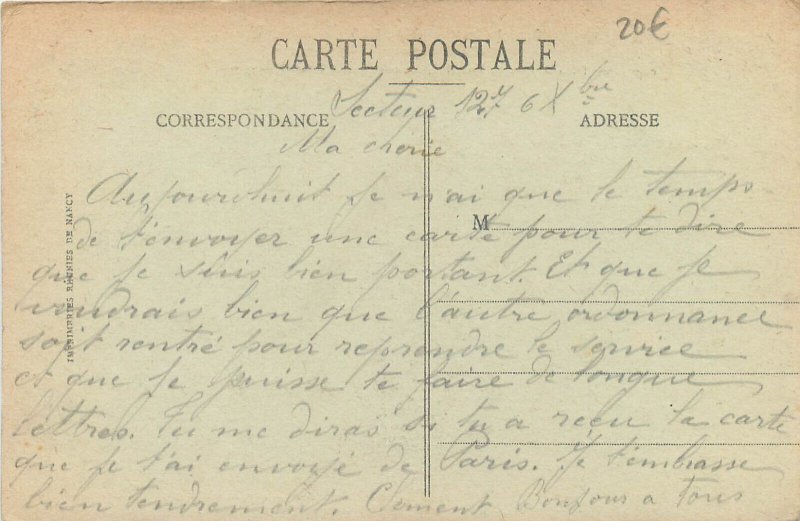 20€
CARTE POSTALE
Secteur 127 6 Xbre
CORRESPONDANCE
ADRESSE
Ma cherie
Aujourdhuit je n'ai que le temps
M
de t'envoyer une carte pour te dire
que je suis bien portant. Et que je
voudrais bien que l'autre ordonnance
soit rentré pour reprendre le service
et que je puisse te faire de longue
lettres. Tu me diras si tu a reçu la carte
que je t'ai envoyé de Paris. Je t'embrasse
bien tendrement. Clement Bonjour a tous
IMPRIMERIES RÉUNIES DE NANCY